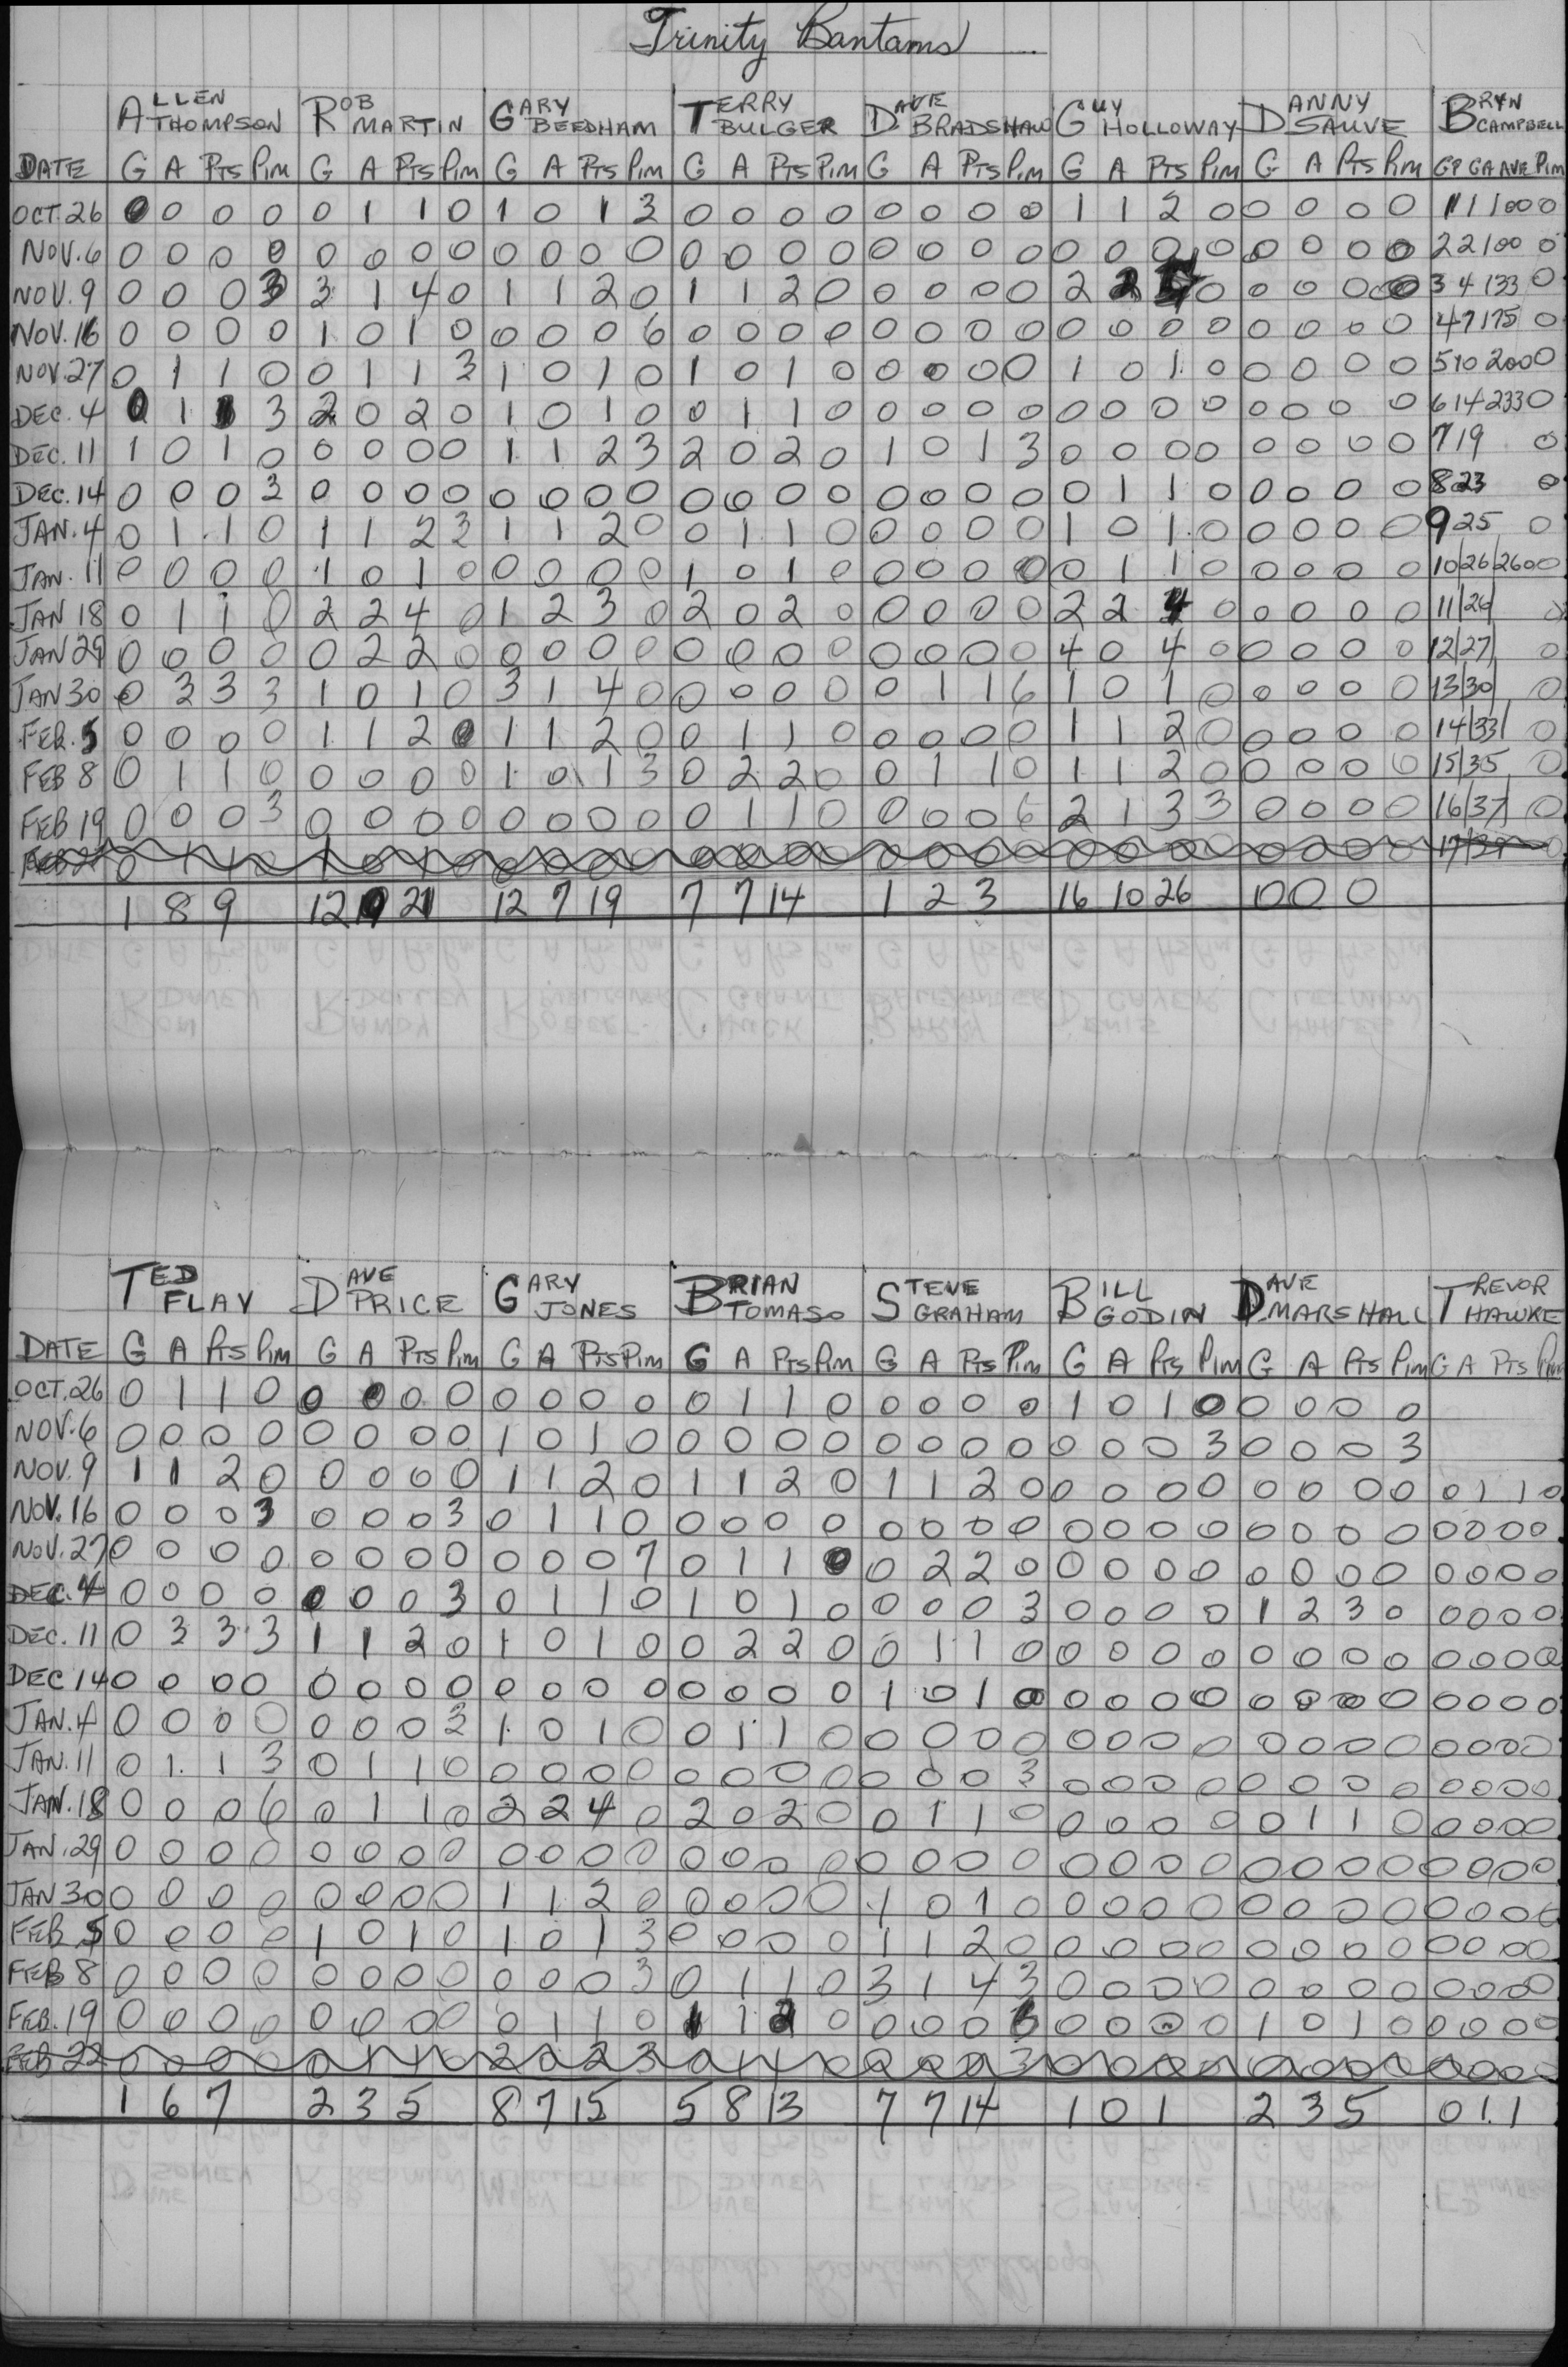 Trinity Bantams
ALLEN THOMPSON ROB MARTIN GARY BEEDHAM TERRY BULGER DAVE BRADSHAW GUY HOLLOWAY DANNY SAUVE BRYN CAMPBELL
DATE G A PTS PIM G A PTS PIM G A PTS PIM G A PTS PIM G A PTS PIM G A PTS PIM G A PTS PIM GP GA AVE PIM
OCT. 26 0 0 0 0 0 1 1 0 1 0 1 3 0 0 0 0 0 0 0 0 1 1 2 0 0 0 0 0 1 1 100 0
NOV. 6 0 0 0 0 0 0 0 0 0 0 0 0 0 0 0 0 0 0 0 0 0 0 0 0 0 0 0 0 2 2 100 0
NOV. 9 0 0 0 3 3 1 4 0 1 1 2 0 1 1 2 0 0 0 0 0 2 2 4 0 0 0 0 0 3 4 133 0
NOV. 16 0 0 0 0 1 0 1 0 0 0 0 6 0 0 0 0 0 0 0 0 0 0 0 0 0 0 0 0 4 7 175 0
NOV. 27 0 1 1 0 0 1 1 3 1 0 1 0 1 0 1 0 0 0 0 0 1 0 1 0 0 0 0 0 5 10 200 0
DEC. 4 0 1 1 3 2 0 2 0 1 0 1 0 0 1 1 0 0 0 0 0 0 0 0 0 0 0 0 0 6 14 233 0
DEC. 11 1 0 1 0 0 0 0 0 1 1 2 3 2 0 2 0 1 0 1 3 0 0 0 0 0 0 0 0 7 19 0
DEC. 14 0 0 0 3 0 0 0 0 0 0 0 0 0 0 0 0 0 0 0 0 0 1 1 0 0 0 0 0 8 23 0
JAN. 4 0 1 1 0 1 1 2 3 1 1 2 0 0 1 1 0 0 0 0 0 1 0 1 0 0 0 0 0 9 25 0
JAN. 11 0 0 0 0 1 0 1 0 0 0 0 0 1 0 1 0 0 0 0 0 0 1 1 0 0 0 0 0 10 26 260 0
JAN 18 0 1 1 0 2 2 4 0 1 2 3 0 2 0 2 0 0 0 0 0 2 2 4 0 0 0 0 0 11 26 0
JAN 29 0 0 0 0 0 2 2 0 0 0 0 0 0 0 0 0 0 0 0 0 4 0 4 0 0 0 0 0 12 27 0
JAN 30 0 3 3 3 1 0 1 0 3 1 4 0 0 0 0 0 0 1 1 6 1 0 1 0 0 0 0 0 13 30 0
FEB. 5 0 0 0 0 1 1 2 0 1 1 2 0 0 1 1 0 0 0 0 0 1 1 2 0 0 0 0 0 14 33 0
FEB 8 0 1 1 0 0 0 0 0 1 0 1 3 0 2 2 0 0 1 1 0 1 1 2 0 0 0 0 0 15 35 0
FEB 19 0 0 0 3 0 0 0 0 0 0 0 0 0 1 1 0 0 0 0 6 2 1 3 3 0 0 0 0 16 37 0
0 1 1 0 1 0 1 0 0 0 0 0 0 0 0 0 0 0 0 0 0 0 0 0 0 0 0 0 17
1 8 9 12 21 12 7 19 7 7 14 1 2 3 16 10 26 0 0 0
TED FLAY DAVE PRICE GARY JONES BRIAN TOMASO STEVE GRAHAM BILL GODIN DAVE MARSHALL TREVOR HAWKE
DATE G A PTS PIM G A PTS PIM G A PTS PIM G A PTS PIM G A PTS PIM G A PTS PIM G A PTS PIM G A PTS PIM
OCT. 26 0 1 1 0 0 0 0 0 0 0 0 0 0 1 1 0 0 0 0 0 1 0 1 0 0 0 0 0
NOV. 6 0 0 0 0 0 0 0 0 1 0 1 0 0 0 0 0 0 0 0 0 0 0 0 3 0 0 0 3
NOV. 9 1 1 2 0 0 0 0 0 1 1 2 0 1 1 2 0 1 1 2 0 0 0 0 0 0 0 0 0 0 1 1 0
NOV. 16 0 0 0 3 0 0 0 3 0 1 1 0 0 0 0 0 0 0 0 0 0 0 0 0 0 0 0 0 0 0 0 0
NOV. 27 0 0 0 0 0 0 0 0 0 0 0 7 0 1 1 0 0 2 2 0 0 0 0 0 0 0 0 0 0 0 0 0
DEC. 4 0 0 0 0 0 0 0 3 0 1 1 0 1 0 1 0 0 0 0 3 0 0 0 0 1 2 3 0 0 0 0 0
DEC. 11 0 3 3 3 1 1 2 0 1 0 1 0 0 2 2 0 0 1 1 0 0 0 0 0 0 0 0 0 0 0 0 0
DEC 14 0 0 0 0 0 0 0 0 0 0 0 0 0 0 0 0 1 0 1 0 0 0 0 0 0 0 0 0 0 0 0 0
JAN. 4 0 0 0 0 0 0 0 3 1 0 1 0 0 1 1 0 0 0 0 0 0 0 0 0 0 0 0 0 0 0 0 0
JAN. 11 0 1 1 3 0 1 1 0 0 0 0 0 0 0 0 0 0 0 0 3 0 0 0 0 0 0 0 0 0 0 0 0
JAN. 18 0 0 0 6 0 1 1 0 2 2 4 0 2 0 2 0 0 1 1 0 0 0 0 0 0 1 1 0 0 0 0 0
JAN. 29 0 0 0 0 0 0 0 0 0 0 0 0 0 0 0 0 0 0 0 0 0 0 0 0 0 0 0 0 0 0 0 0
JAN 30 0 0 0 0 0 0 0 0 1 1 2 0 0 0 0 0 1 0 1 0 0 0 0 0 0 0 0 0 0 0 0 0
FEB 5 0 0 0 0 1 0 1 0 1 0 1 3 0 0 0 0 1 1 2 0 0 0 0 0 0 0 0 0 0 0 0 0
FEB 8 0 0 0 0 0 0 0 0 0 0 0 3 0 1 1 0 3 1 4 3 0 0 0 0 0 0 0 0 0 0 0 0
FEB. 19 0 0 0 0 0 0 0 0 0 1 1 0 1 1 2 0 0 0 0 0 0 0 0 1 0 1 0 0 0 0 0
FEB 22 0 0 0 0 0 1 1 0 2 0 2 3 0 1 1 0 0 0 0 3 0 0 0 0 0 0 0 0 0 0 0 0
1 6 7 2 3 5 8 7 15 5 8 13 7 7 14 1 0 1 2 3 5 0 1 1